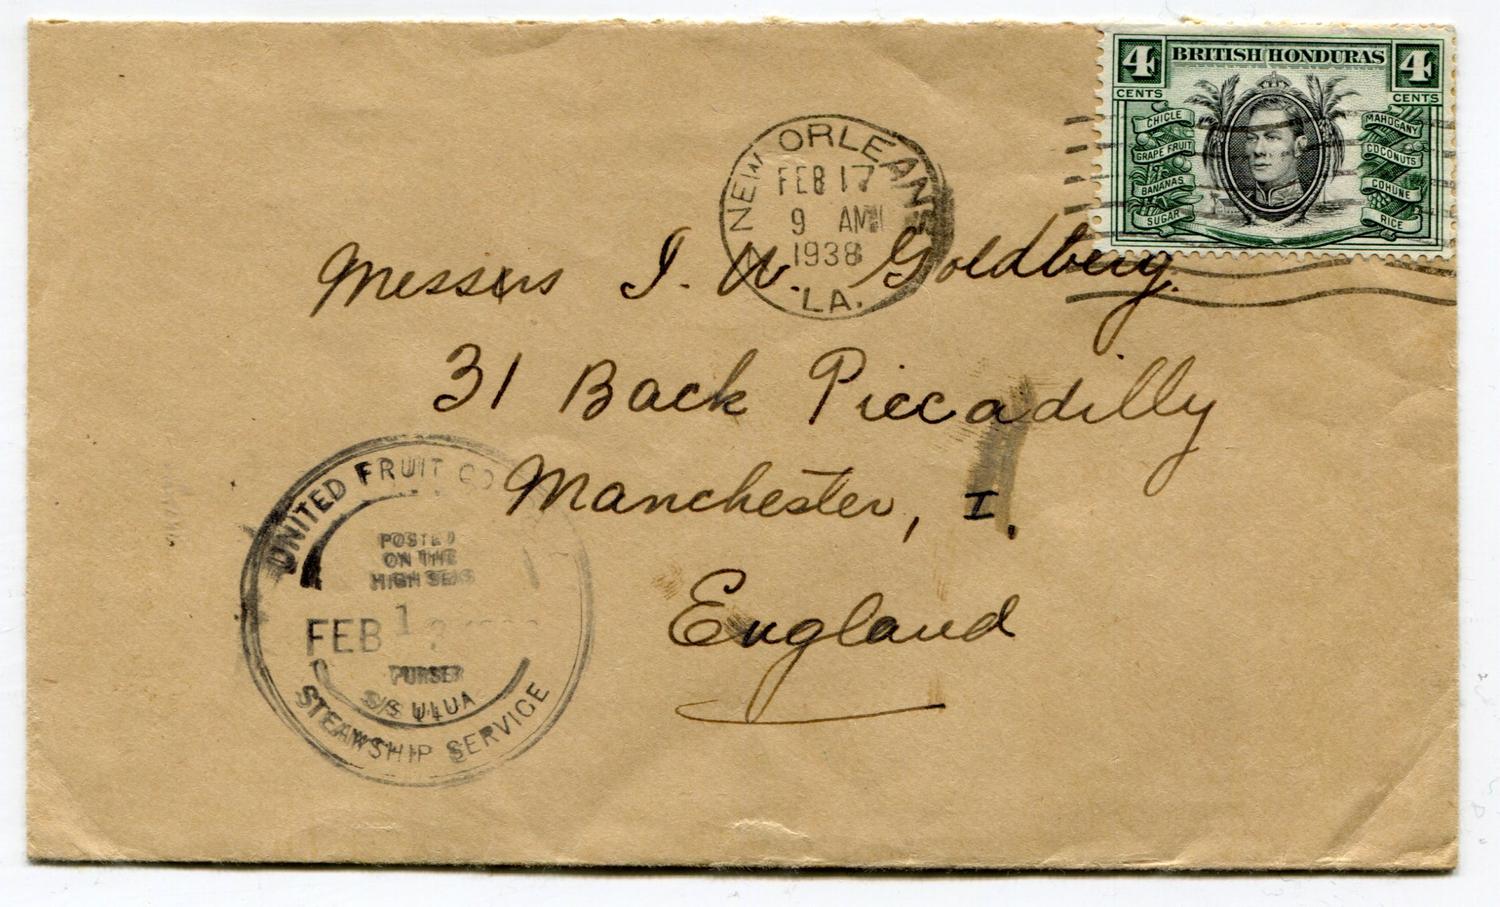 BRITISH HONDURAS
4 CENTS
4 CENTS
CHICLE
GRAPE FRUIT
BANANAS
SUGAR
MAHOGANY
COCONUTS
COHUNE
RICE
NEW ORLEANS
FEB 17
9 AM
1938
LA.
Messrs I. W. Goldberg.
31 Back Piccadilly
Manchester, I.
England
UNITED FRUIT CO
POSTED
ON THE
HIGH SEAS
FEB 1
PURSER
S/S ULUA
STEAMSHIP SERVICE